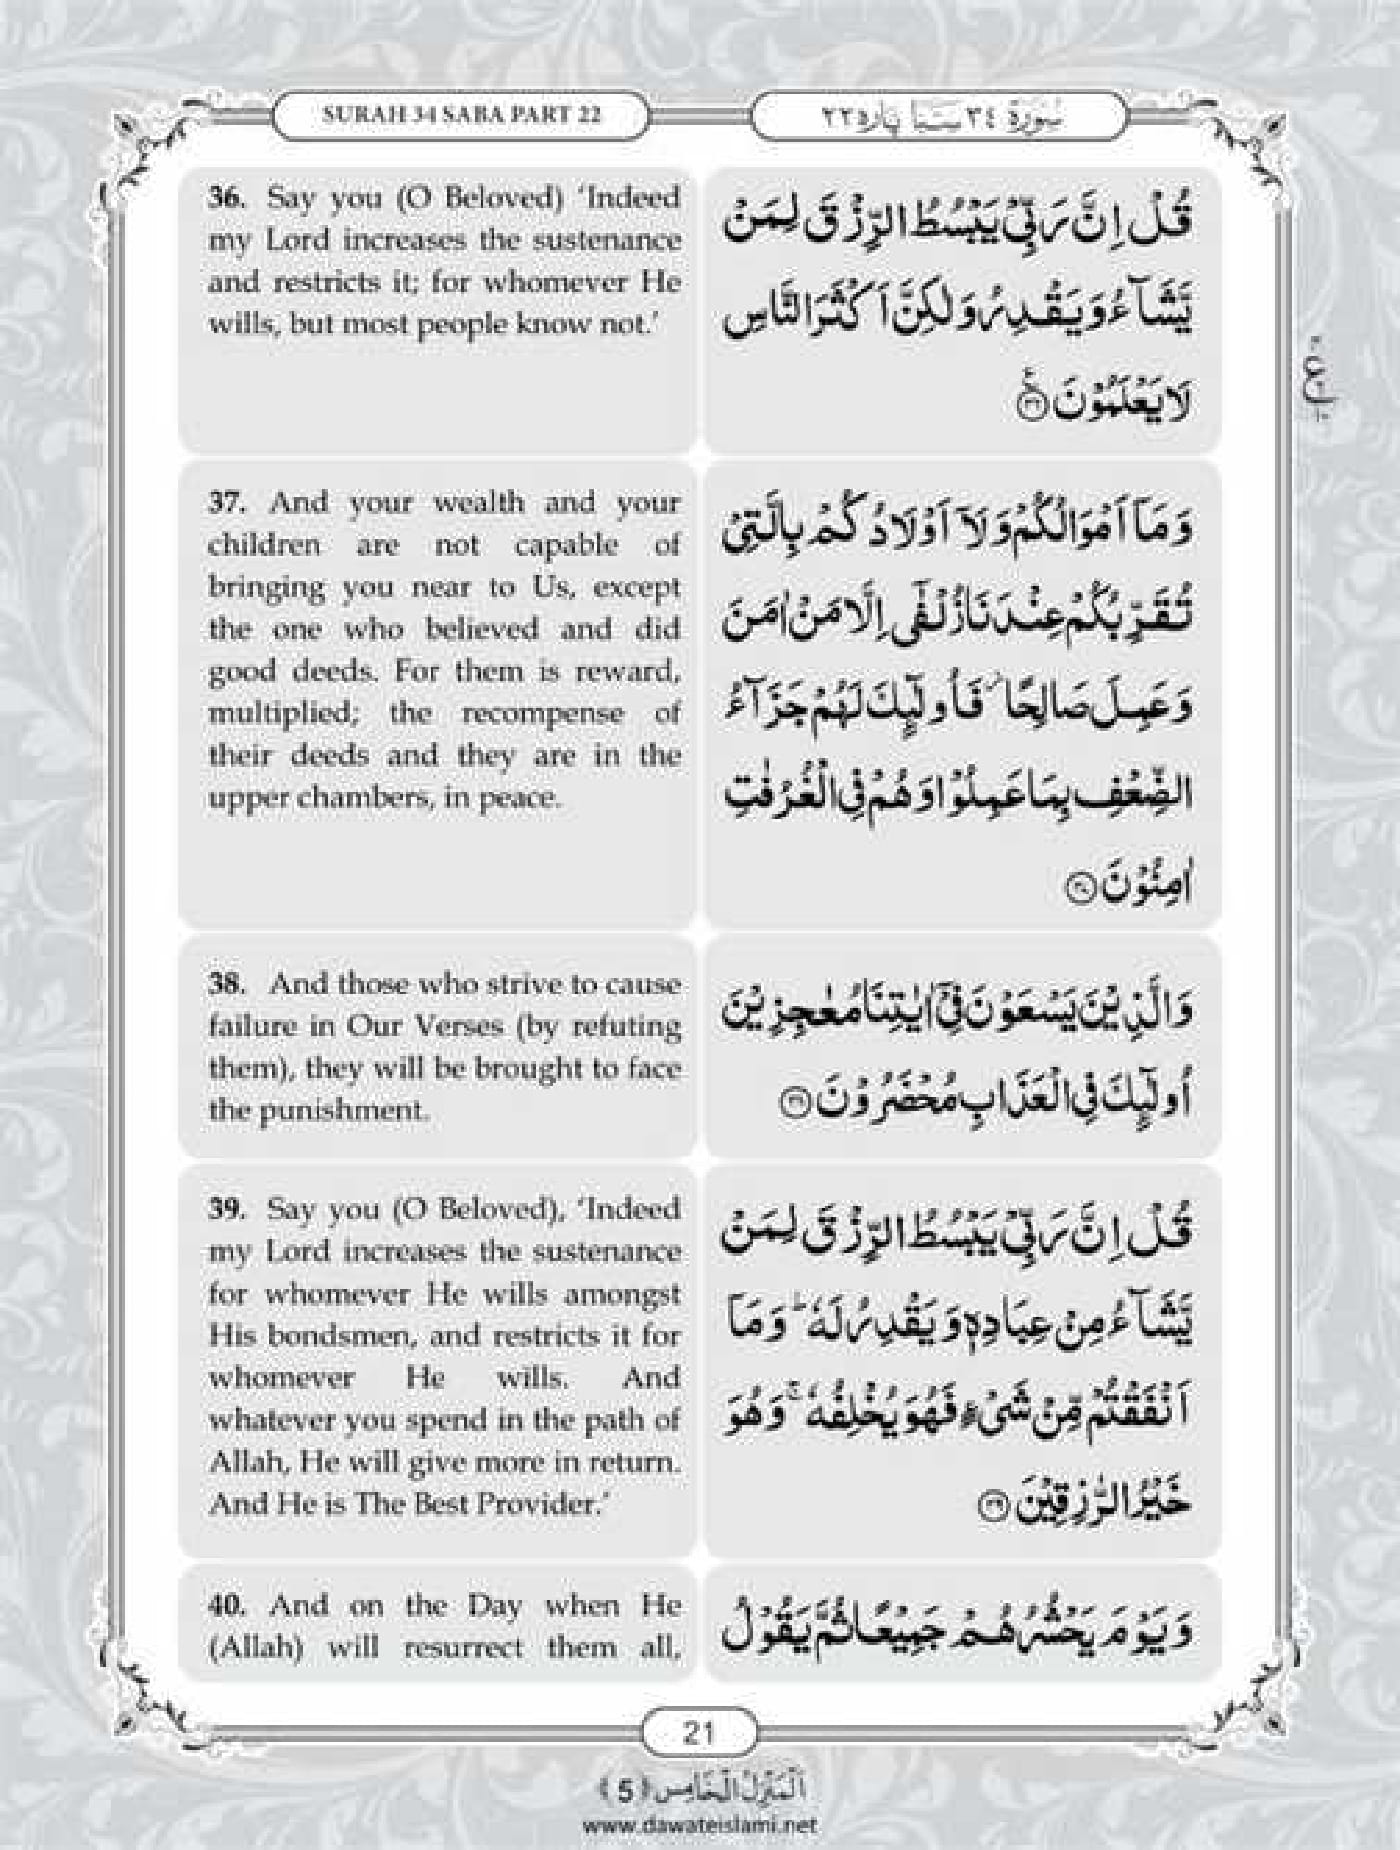 SURAH 34 SABA PART 22
سُوْرَةُ ٣٤ سَبَا پاره ٢٢
36. Say you (O Beloved) ‘Indeed
my Lord increases the sustenance
and restricts it; for whomever He
wills, but most people know not.’
قُلْ اِنَّ رَبِّیْ یَبْسُطُ الرِّزْقَ لِمَنْ
یَّشَآءُ وَیَقْدِرُ وَلٰکِنَّ اَکْثَرَ النَّاسِ
لَا یَعْلَمُوْنَ ﴿٣٦﴾
37. And your wealth and your
children are not capable of
bringing you near to Us, except
the one who believed and did
good deeds. For them is reward,
multiplied; the recompense of
their deeds and they are in the
upper chambers, in peace.
وَمَاۤ اَمْوَالُکُمْ وَلَاۤ اَوْلَادُکُمْ بِالَّتِیْ
تُقَرِّبُکُمْ عِنْدَنَا زُلْفٰۤی اِلَّا مَنْ اٰمَنَ
وَعَمِلَ صَالِحًا ؗ فَاُولٰٓئِکَ لَهُمْ جَزَآءُ
الضِّعْفِ بِمَا عَمِلُوْا وَهُمْ فِی الْغُرُفٰتِ
اٰمِنُوْنَ ﴿٣٧﴾
38. And those who strive to cause
failure in Our Verses (by refuting
them), they will be brought to face
the punishment.
وَالَّذِیْنَ یَسْعَوْنَ فِیْۤ اٰیٰتِنَا مُعٰجِزِیْنَ
اُولٰٓئِکَ فِی الْعَذَابِ مُحْضَرُوْنَ ﴿٣٨﴾
39. Say you (O Beloved), ‘Indeed
my Lord increases the sustenance
for whomever He wills amongst
His bondsmen, and restricts it for
whomever He wills. And
whatever you spend in the path of
Allah, He will give more in return.
And He is The Best Provider.’
قُلْ اِنَّ رَبِّیْ یَبْسُطُ الرِّزْقَ لِمَنْ
یَّشَآءُ مِنْ عِبَادِهٖ وَیَقْدِرُ لَهٗ ؕ وَمَاۤ
اَنْفَقْتُمْ مِّنْ شَیْءٍ فَهُوَ یُخْلِفُهٗ ۚ وَهُوَ
خَیْرُ الرّٰزِقِیْنَ ﴿٣٩﴾
40. And on the Day when He
(Allah) will resurrect them all,
وَیَوْمَ یَحْشُرُهُمْ جَمِیْعًا ثُمَّ یَقُوْلُ
21
اَلْمَنْزِلُ الْخَامِس ﴿5﴾
www.dawateislami.net